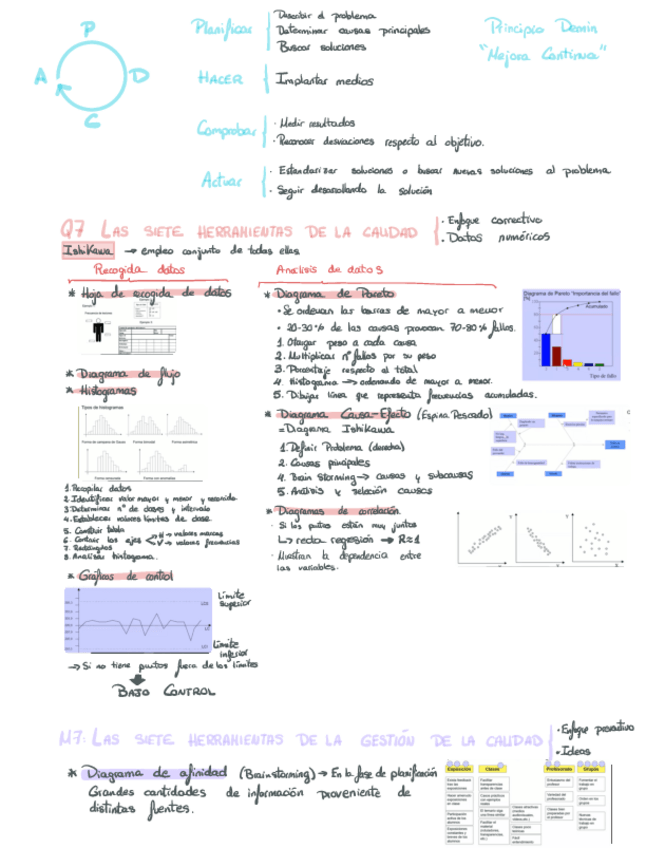 P
A
D
C
Planificar
Describir el problema
Determinar causas principales
Buscar soluciones
Principio Demin
"Mejora Continua"
HACER
Implantar medios
Comprobar
· Medir resultados
· Reconocer desviaciones respecto al objetivo.
Actuar
· Estandarizar soluciones o buscar nuevas soluciones al problema
· Seguir desarrollando la solución
Q7 LAS SIETE HERRAMIENTAS DE LA CALIDAD
· Enfoque correctivo
· Datos numéricos
Ishikawa → empleo conjunto de todas ellas.
Recogida datos
Análisis de datos
* Hoja de recogida de datos
* Diagrama de flujo
* Histogramas
Tipos de histogramas
1. Recopilar datos
2. Identificar valor mayor y menor y recorrido
3. Determinar nº de clases y intervalo
4. Establecer valores límites de clase
5. Construir tabla
6. Contruir los ejes
H → valores marcas
V → valores frecuencias
7. Rectángulos
8. Analizar histograma.
* Gráficos de control
Límite superior
Límite inferior
→ Si no tiene puntos fuera de los límites
BAJO CONTROL
* Diagrama de Pareto
• Se ordenan las barras de mayor a menor
• 20-30% de las causas provocan 70-80% fallos.
1. Otorgar peso a cada causa
2. Multiplicar nº fallos por su peso
3. Porcentaje respecto al total
4. Histograma → ordenando de mayor a menor.
5. Dibujar línea que representa frecuencias acumuladas.
Diagrama de Pareto "Importancia del fallo"
Acumulado
Tipo de fallo
* Diagrama Causa-Efecto (Espina Pescado)
=Diagrama Ishikawa
1. Definir Problema (derecha)
2. Causas principales
4. Brain Storming → causas y subcausas
5. Análisis y selección causas
* Diagramas de correlación.
· Si los puntos están muy juntos
↳ recta regresión → R≈1
· Muestran la dependencia entre
las variables.
M7: LAS SIETE HERRAMIENTAS DE LA GESTIÓN DE LA CALIDAD
· Enfoque preventivo
• Ideas
* Diagrama de afinidad (Brainstorming) → En la fase de planificación
Grandes cantidades de información proveniente de
distintas fuentes.
Exposición
Clases
Profesorado
Grupos